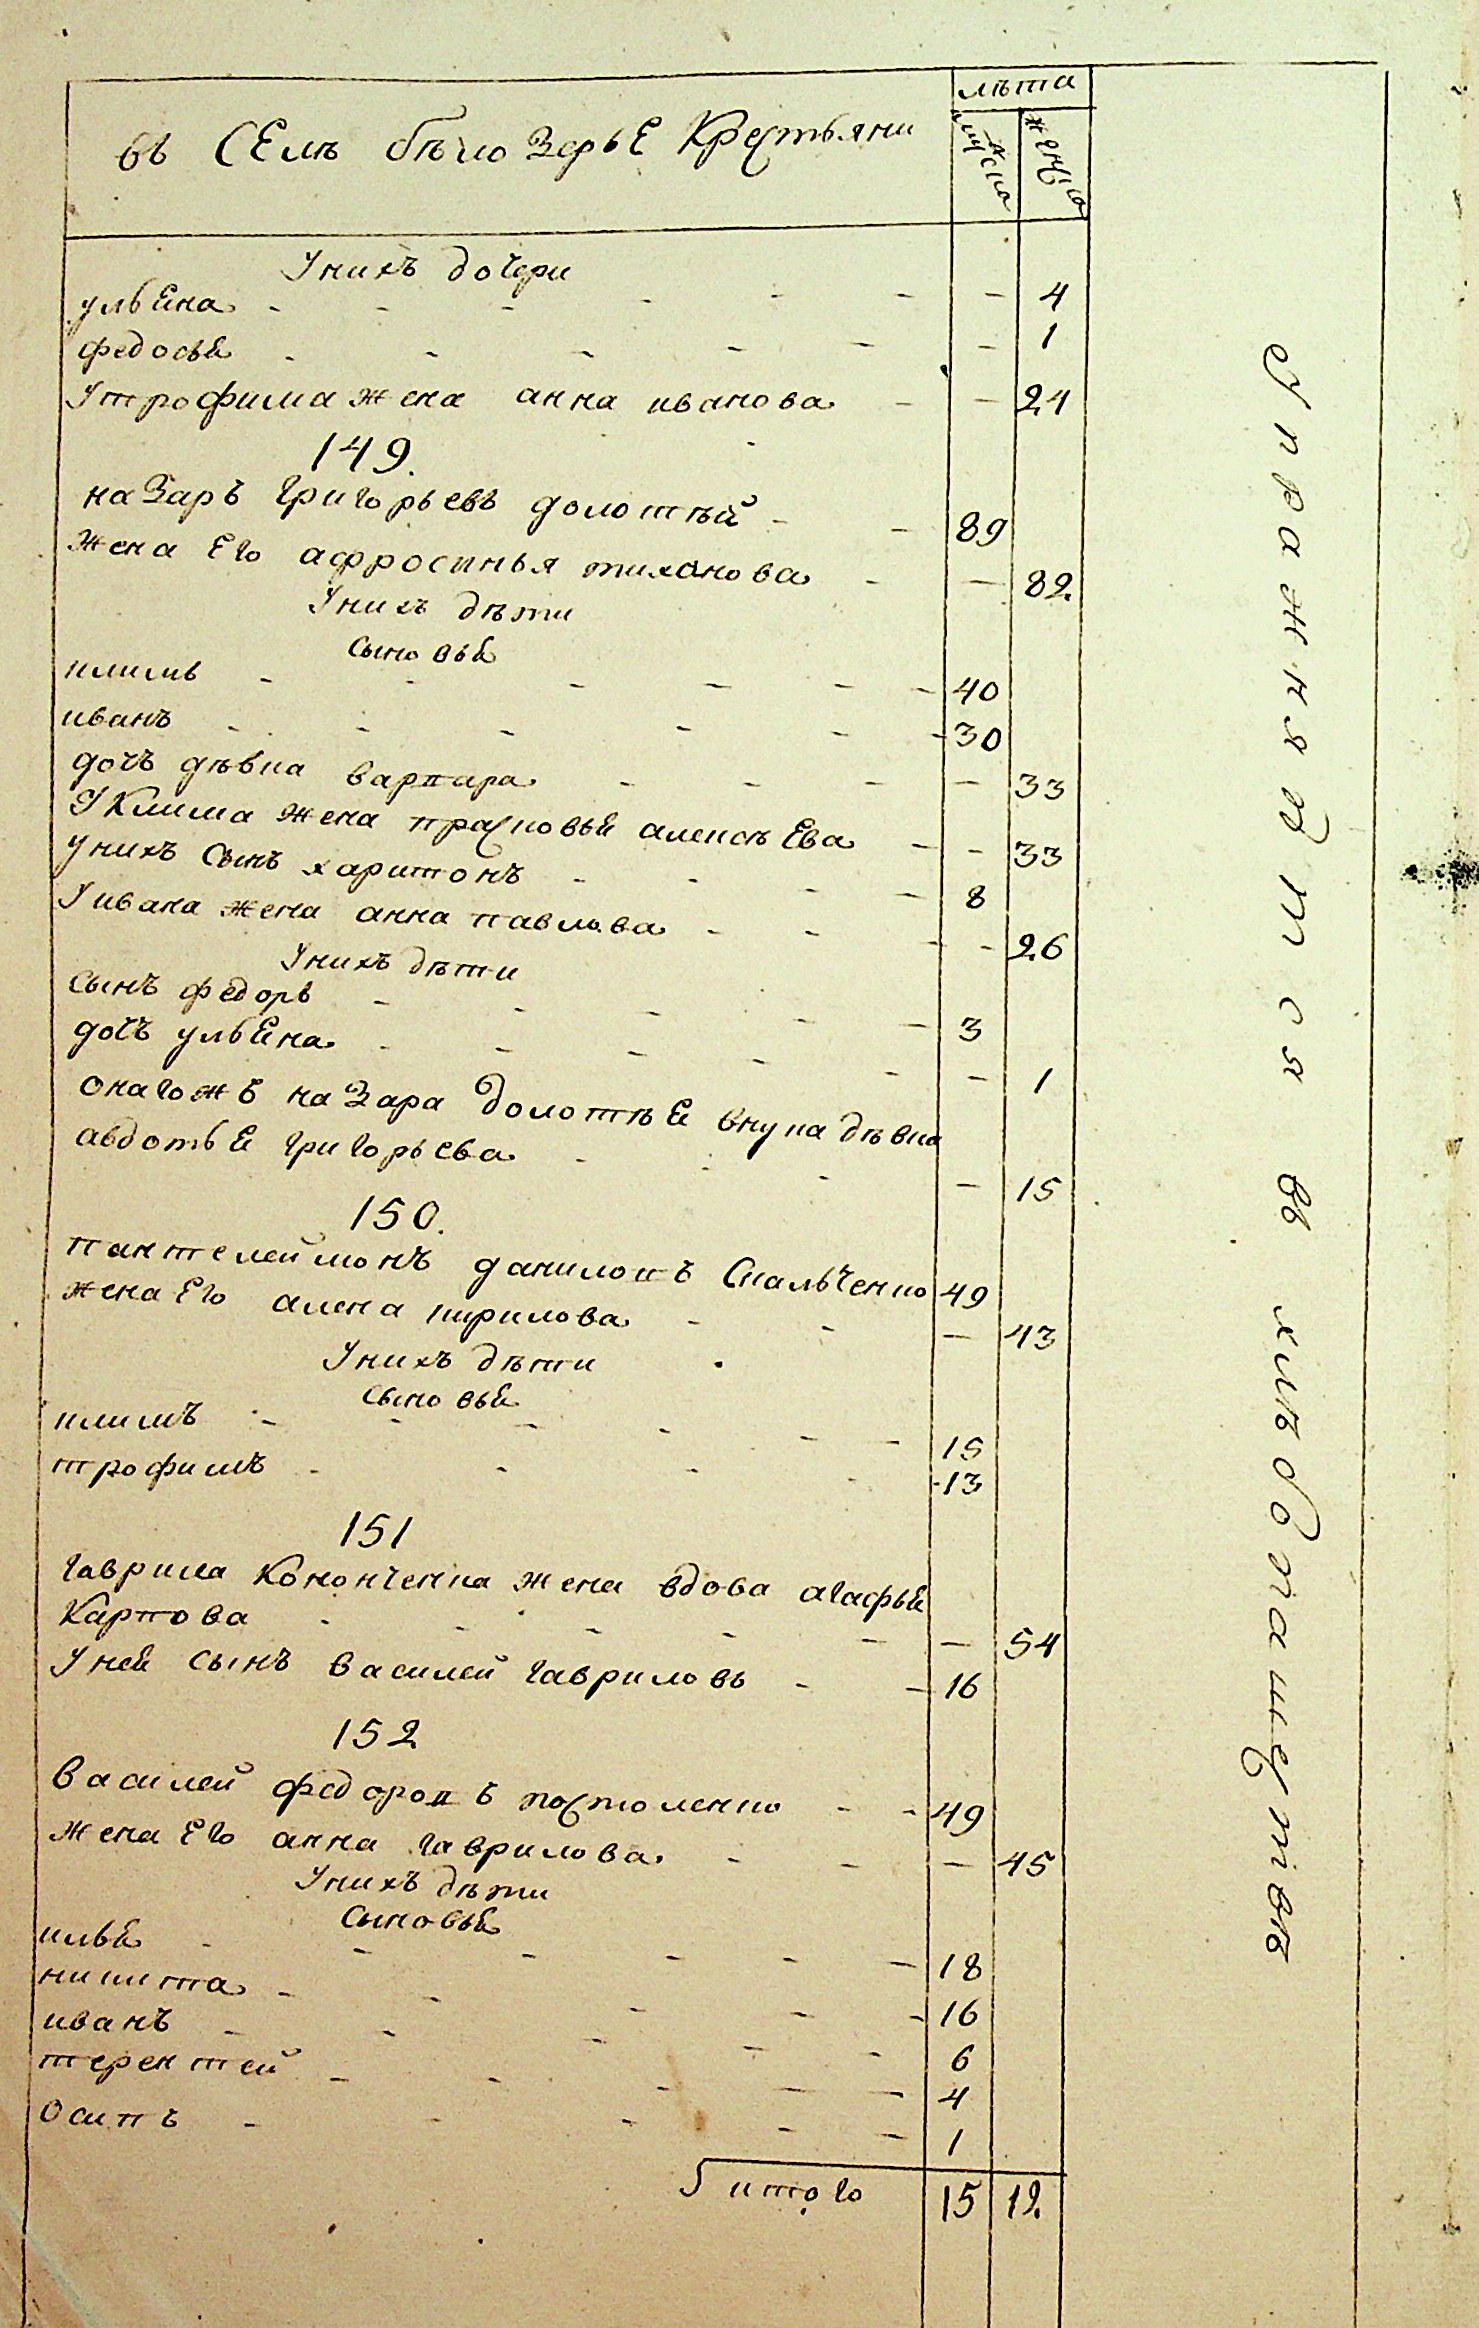 лѣта
въ Селѣ бѣлозерьѣ Крестьяни
мужеска
женска
Унихъ дочери
ульяна - 4
федосья - 1
Утрофима жена анна иванова - 24
149.
назаръ григорьевъ долотий - 89
жена Его афросинья тиханова - 82
Унихъ дѣти
сыновья
климъ - 40
иванъ - 30
дочъ дѣвка варвара - 33
Уклима жена прасковья алексѣева - 33
унихъ сынъ харитонъ - 8
Уивана жена анна павлова - 26
Унихъ дѣти
сынъ федоръ - 3
дочъ ульяна - 1
онагожъ назара долотѣя внука дѣвка
авдотья григорьева - 15
150.
пантелеймонъ даниловъ Скальченко 49
жена Его алена кирилова - 43
Унихъ дѣти
сыновья
климъ - 15
трофимъ - 13
151
гаврила Кононченка жена вдова агафья
Карпова - 54
Уней сынъ василей гавриловъ - 16
152
василей федоровъ постоленко - 49
жена Его анна гаврилова - 45
Унихъ дѣти
сыновья
илья - 18
никита - 16
иванъ - 6
терентей - 4
осипъ - 1
итого 15 12
Упражняемися въ хлѣбопашествѣ